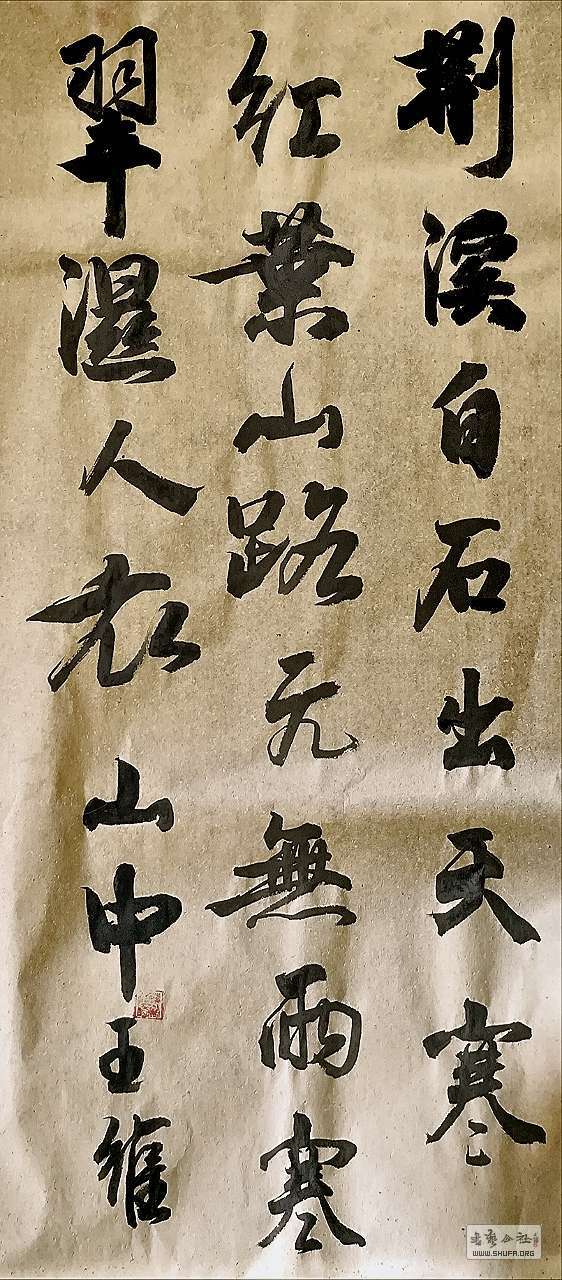 荆溪白石出天寒
紅葉山路元無雨寒
翠濕人衣 山中 王維
書藝公社
WWW.SHUFA.ORG